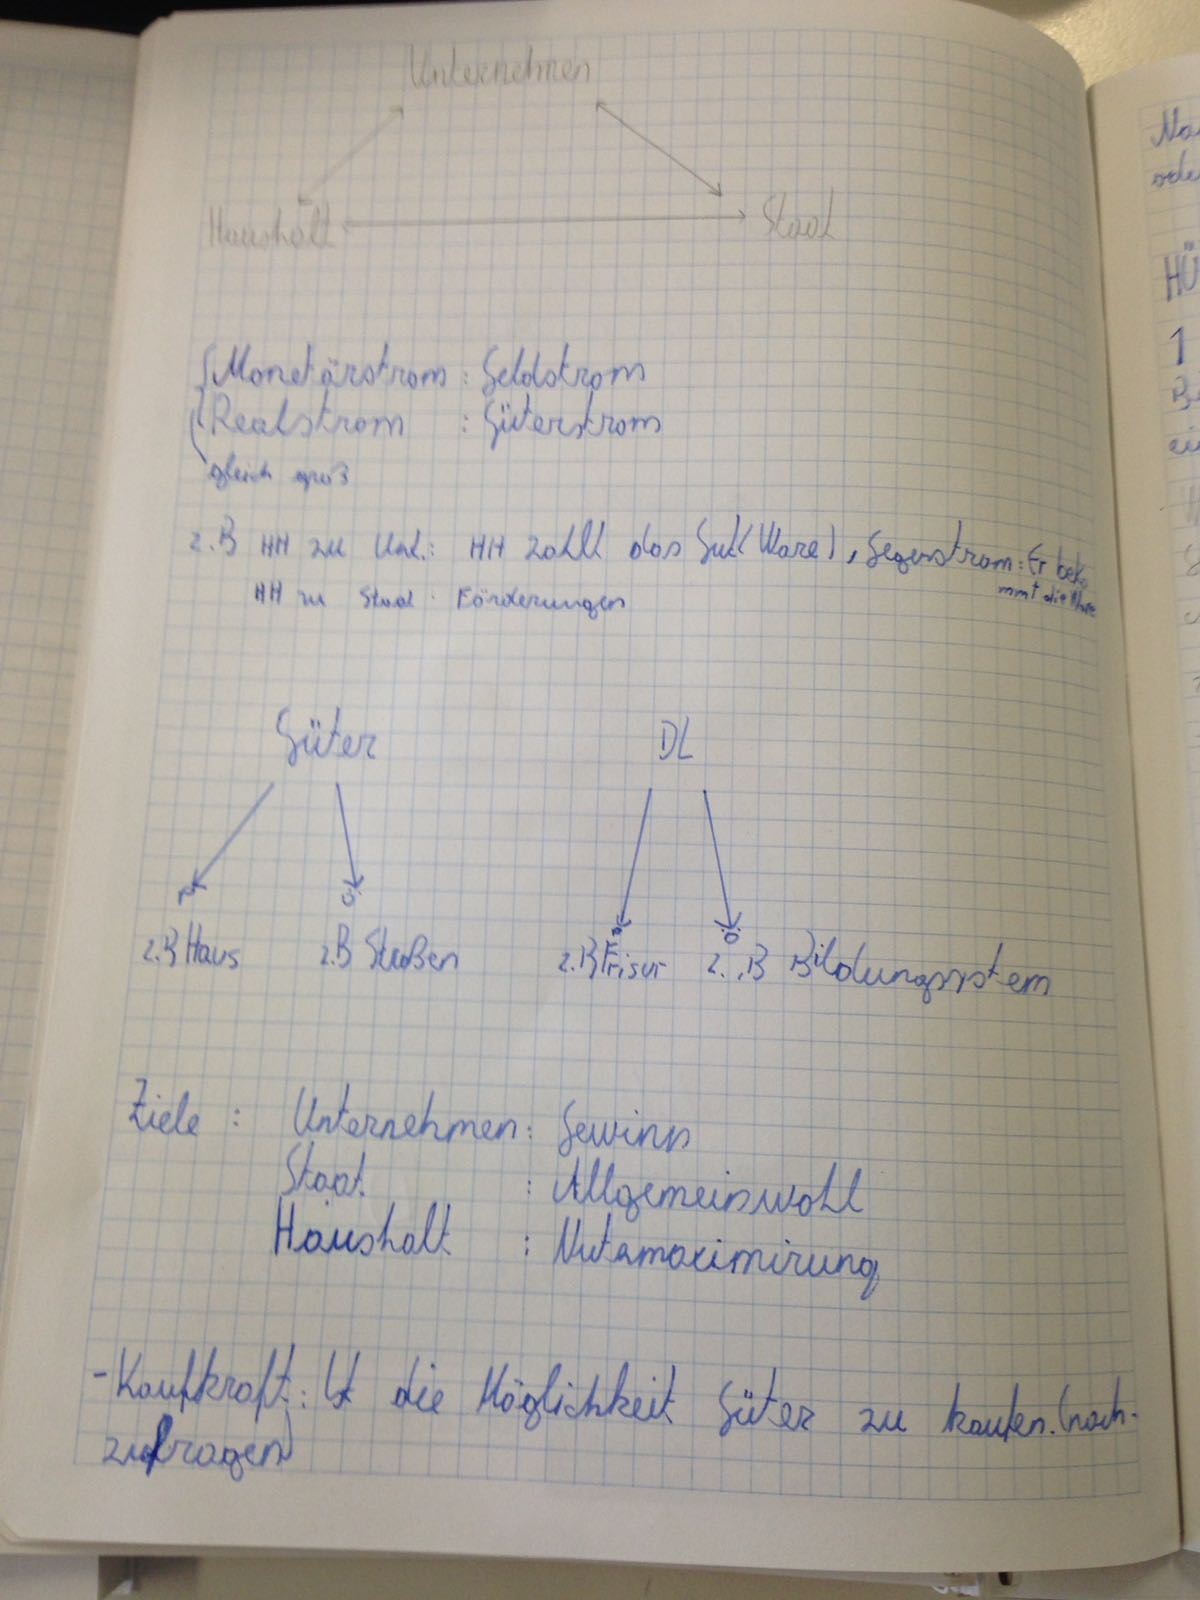 Unternehmen
Haushalt Staat
Monetärstrom : Geldstrom
Realstrom : Güterstrom
gleich groß
z.B HH zu Unt.: HH zahlt das Gut (Ware), Gegenstrom: Er beko
mmt die Ware
HH zu Staat : Förderungen
Güter DL
P Ö P Ö
z.B Haus z.B Straßen z.B Frisur z.B Bildungssystem
Ziele : Unternehmen : Gewinn
Staat : Allgemeinwohl
Haushalt : Nutzmaximirung
- Kaufkraft : Ist die Möglichkeit Güter zu kaufen. (nach-
zufragen)
HÜ
1